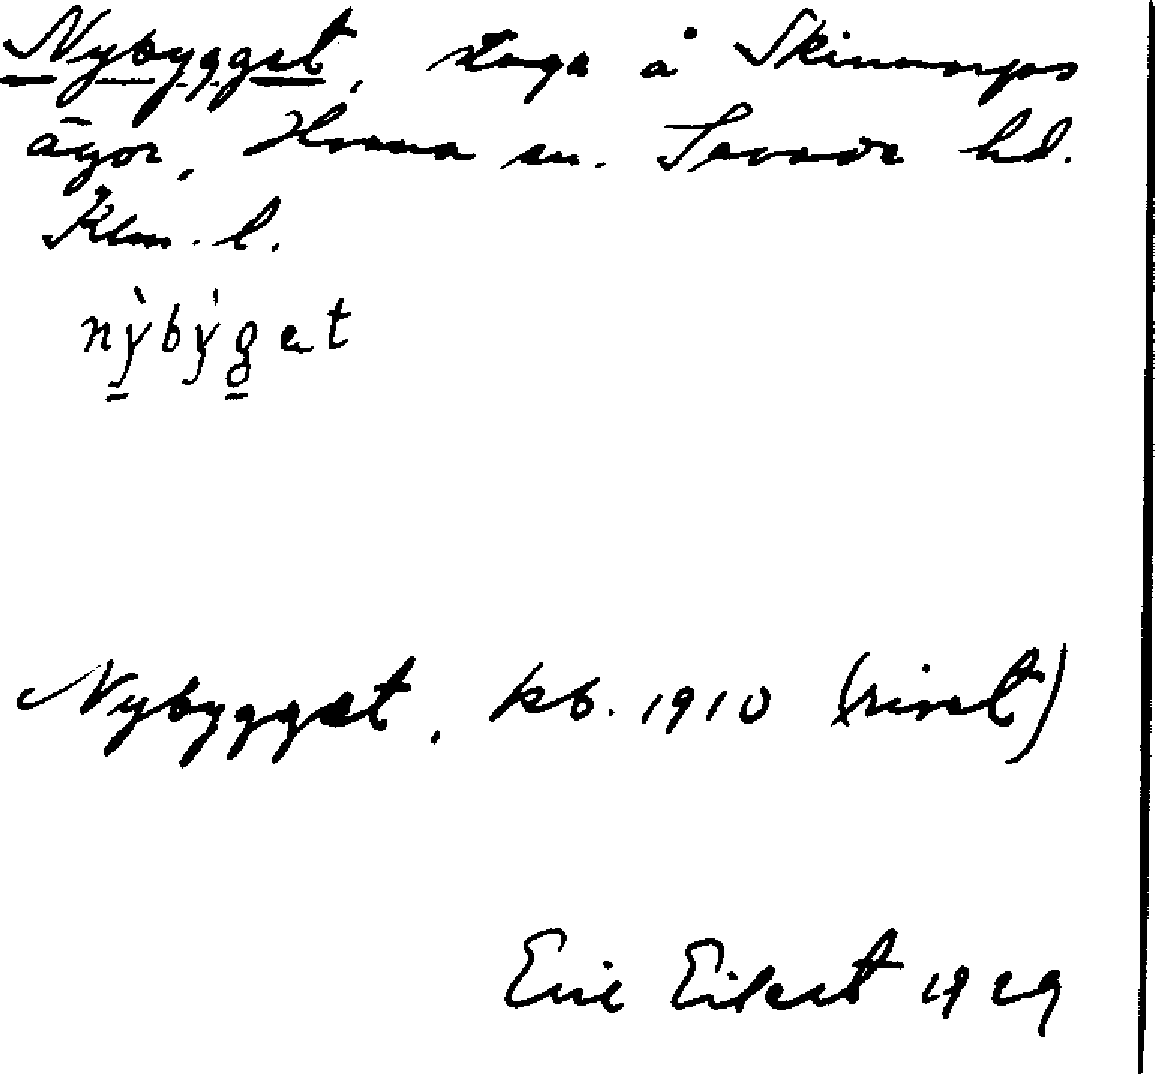 Nybygget, stuga å Skinnarps
ägor, Hvena sn. Sevede hd.
Klm. l.
nỳbýget
Nybygget, kb. 1910 (rivet)
Eric Eilert 1929